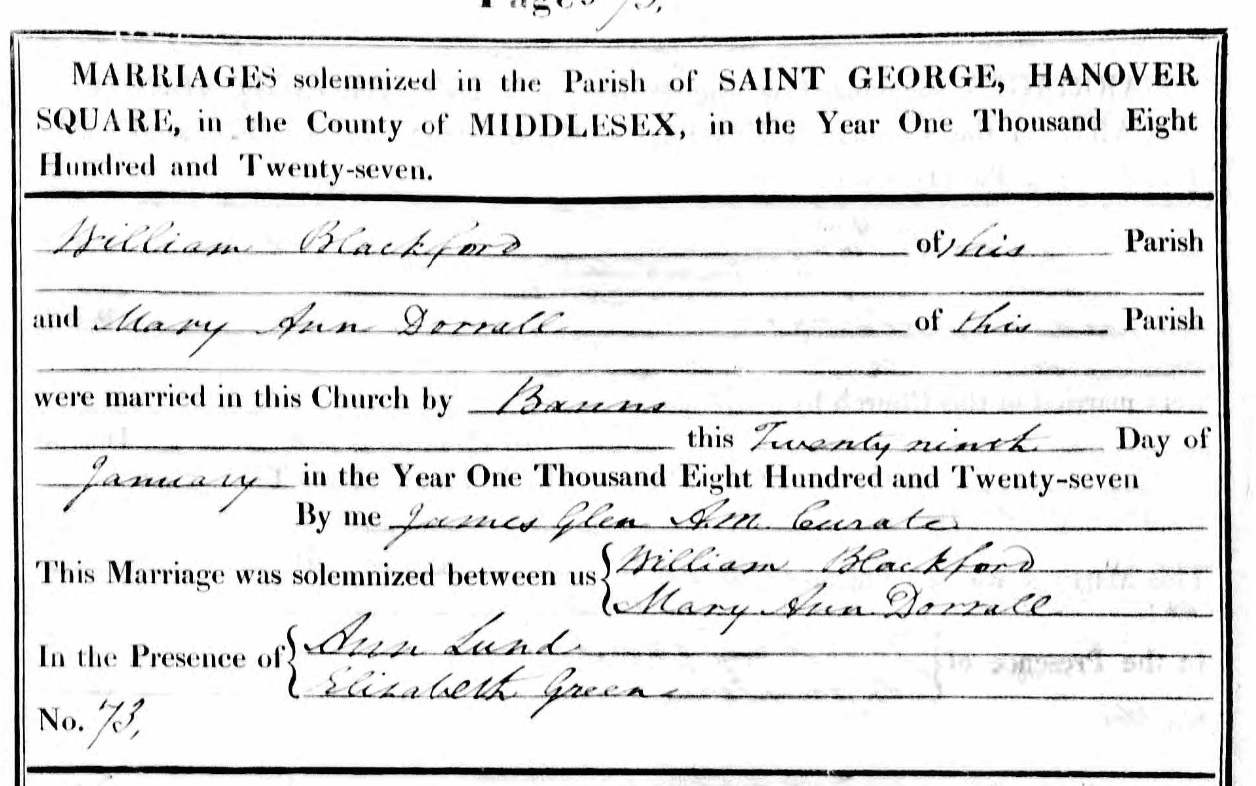 Page 73.
MARRIAGES solemnized in the Parish of SAINT GEORGE, HANOVER
SQUARE, in the County of MIDDLESEX, in the Year One Thousand Eight
Hundred and Twenty-seven.
William Blackford of this Parish
and Mary Ann Dorrall of this Parish
were married in this Church by Banns
this Twenty ninth Day of
January in the Year One Thousand Eight Hundred and Twenty-seven
By me James Glen A.M. Curate
This Marriage was solemnized between us William Blackford
Mary Ann Dorrall
In the Presence of Ann Lund
Elizabeth Green
No. 73,